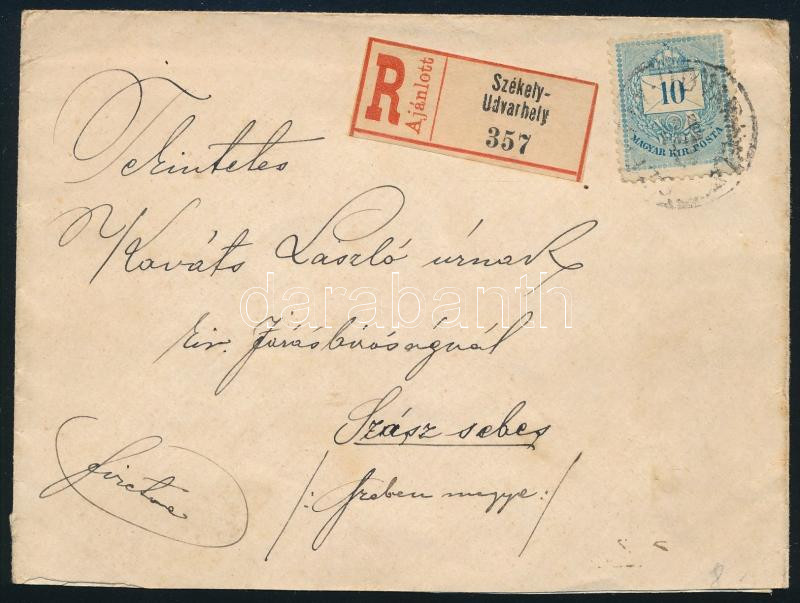 R
Ajánlott
Székely-
Udvarhely
357
10
MAGYAR KIR. POSTA
Tekintetes
Kováts László úrnak
kir. Járásbíróságnál
Szász sebes
/: Szeben megye :/
darabanth